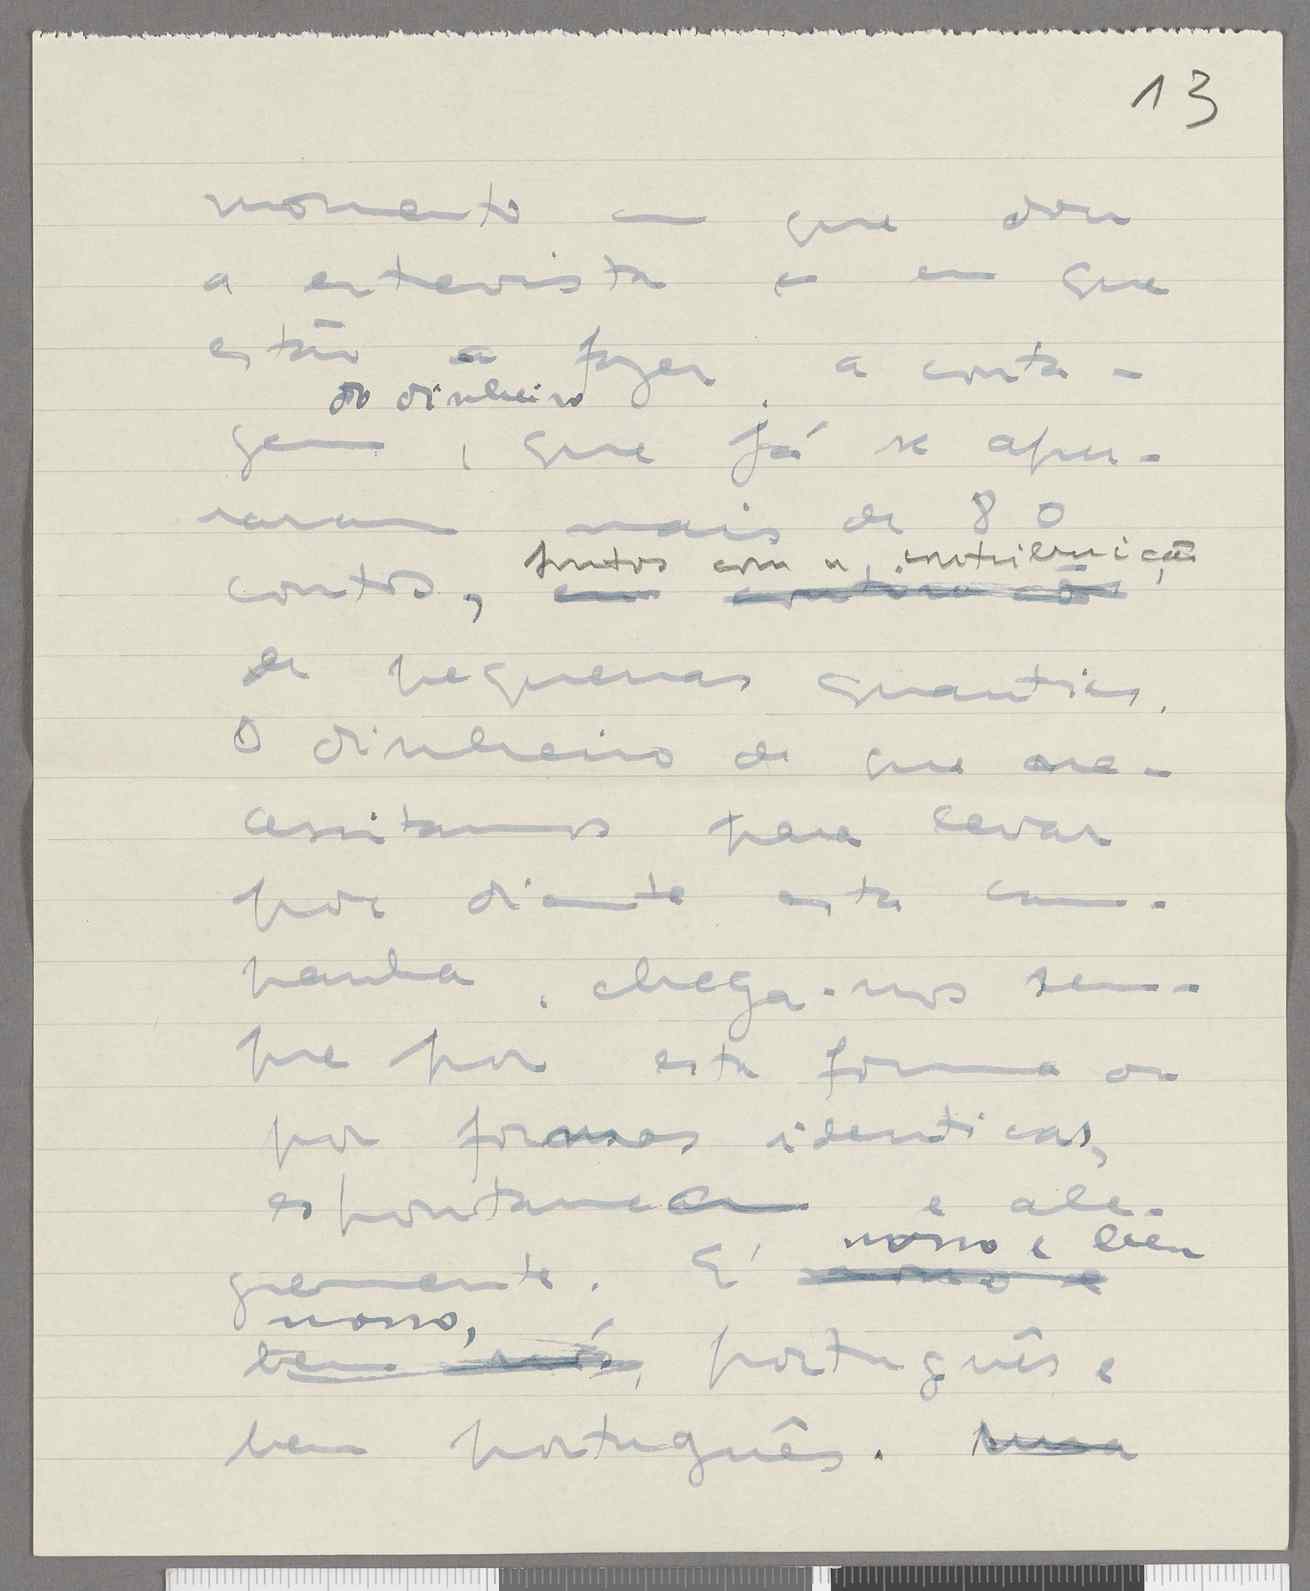 13
momento em que dou
a entrevista e em que
estão a fazer a conta-
do dinheiro
gem, que já se apu-
raram mais de 80
juntos com a contribuição
contos, em
de pequenas quantias.
O dinheiro de que ne-
cessitamos para levar
por diante esta cam-
panha, chega-nos sem-
pre por esta forma ou
por formas identicas,
espontanea e ale-
nosso e bem
gremente. É nosso e
nosso,
bem nós, português e
bem português. Numa